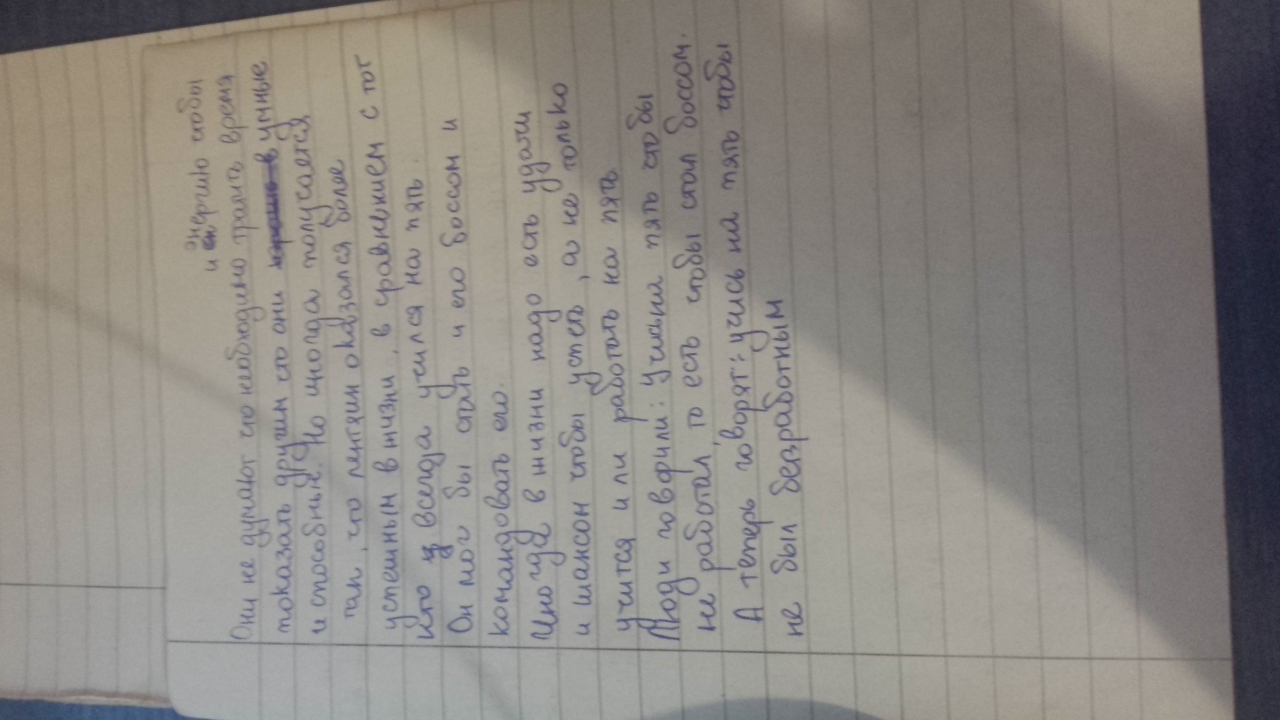 энергию чтобы
и
Они не думают что необходимо тратить время
показать другим что они умные
и способные. Но иногда получается
так, что лентяи оказался более
успешным в жизни, в сравнением с тог
кто всегда учился на пять.
Он мог бы стать и его боссом и
командовать его.
Иногда в жизни надо есть удачи
и шансом чтобы успеть, а не только
учится или работать на пять
Люди говорили: учись на пять чтобы
не работал, то есть чтобы стал боссом.
А теперь говорят: учись на пять чтобы
не был безработным